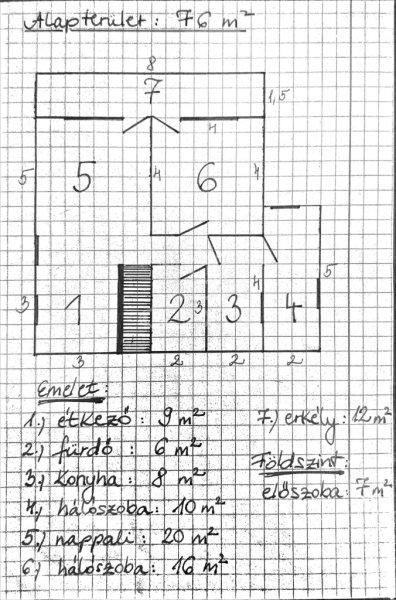 Alapterület: 76 m²
8
7
1,5
4
5
5
4
6
4
3
1
2
3
3
4
4
5
3
2
2
2
Emelet:
1.) étkező : 9 m²
2.) fürdő : 6 m²
3.) konyha : 8 m²
4.) hálószoba : 10 m²
5.) nappali : 20 m²
6.) hálószoba : 16 m²
7.) erkély : 12 m²
Földszint:
előszoba : 7 m²